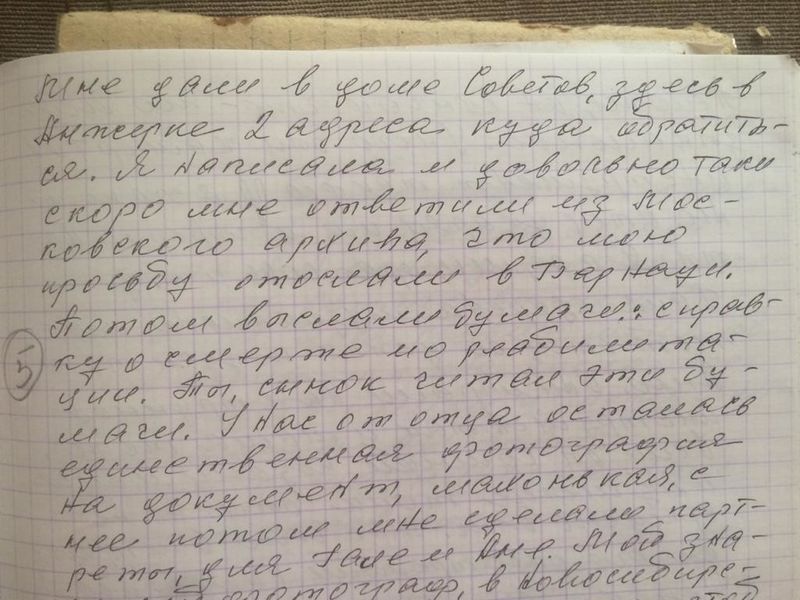 Мне дали в доме Советов, здесь в
Анжерке 2 адреса куда обратить-
ся. Я написала и довольно таки
скоро мне ответили из Мос-
ковского архива, что мою
просьбу отослали в Барнаул.
Потом выслали бумаги: справ-
5
ку о смерте и о реабилита-
ции. Ты, сынок читал эти бу-
маги. У нас от отца осталась
единственная фотография
на документ, малонькая, с
нее потом мне сделали парт-
реты, для Гали и Ани. Мой зна-
фотограф, в Новосибирс-